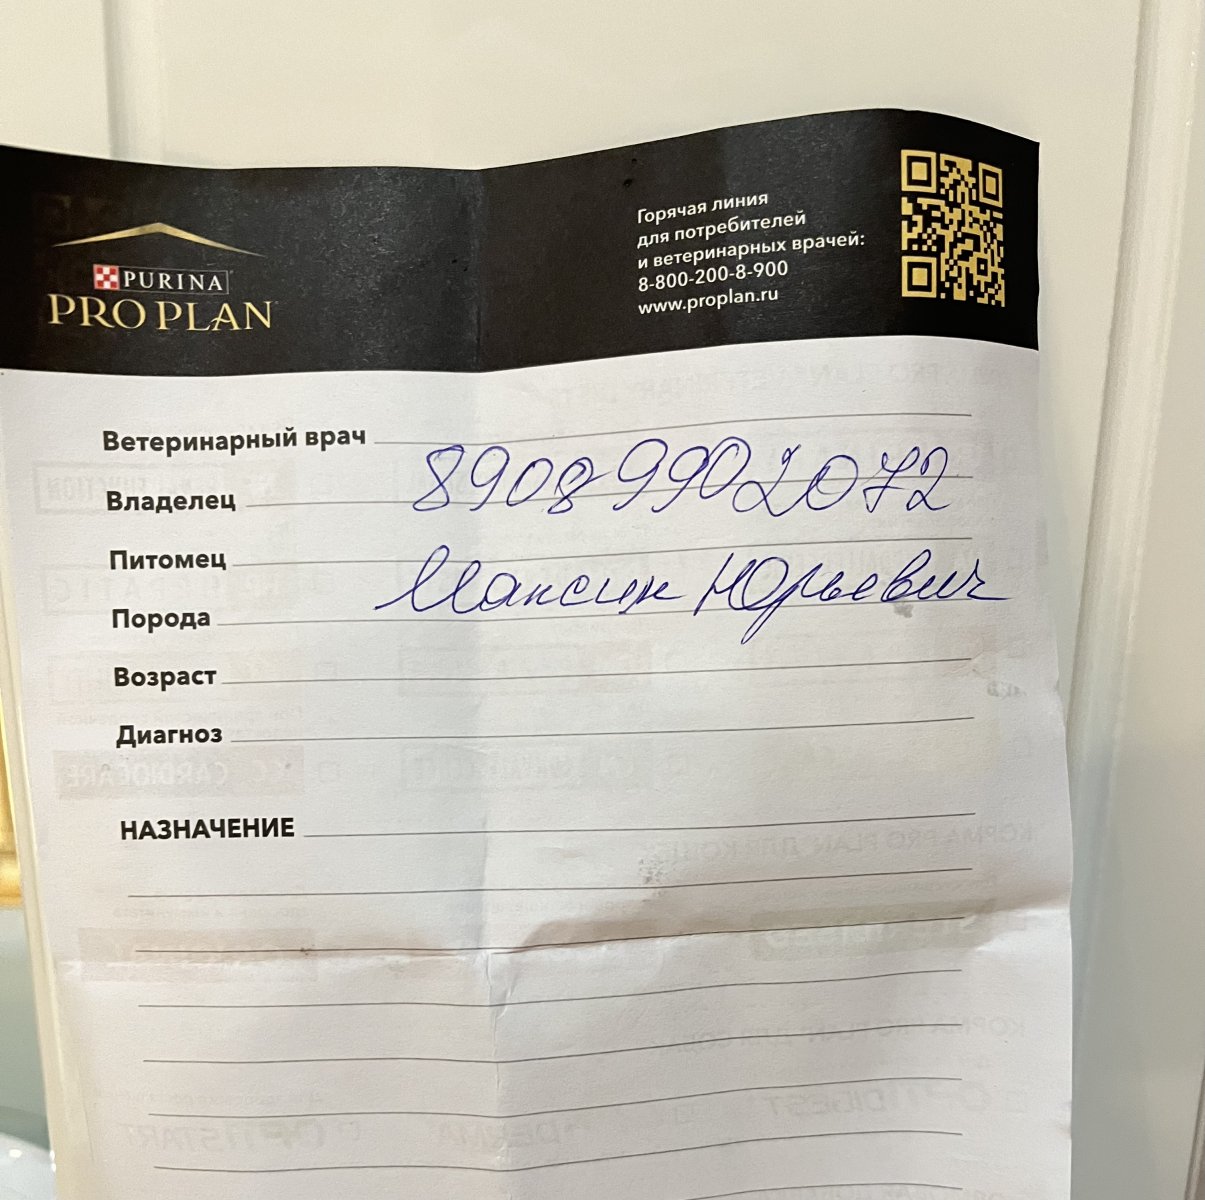 PURINA
PRO PLAN
Горячая линия
для потребителей
и ветеринарных врачей:
8-800-200-8-900
www.proplan.ru
Ветеринарный врач
89089902072
Владелец
Питомец
Максим Юрьевич
Порода
Возраст
Диагноз
НАЗНАЧЕНИЕ